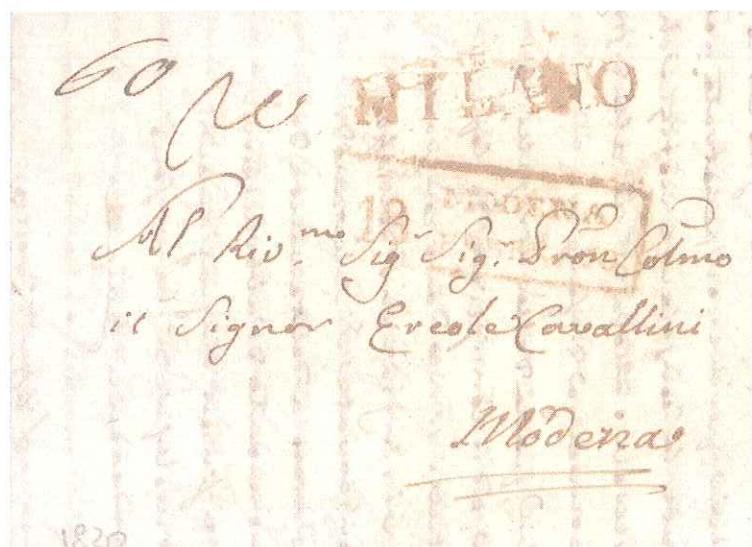 60
MILANO
12 MODENA
Al Riv.mo Sig.r Sig.r Pron Colmo
il Signor Ercole Cavallini
Modena
1820